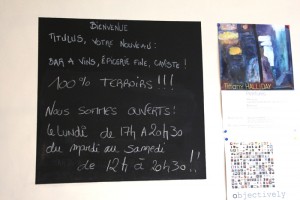 BIENVENUE
TITULUS, VOTRE NOUVEAU :
BAR A VINS, ÉPICERIE FINE, CAVISTE !
100% TERROIRS !!!
NOUS SOMMES OUVERTS !
le LUNDI de 17H A 20H30
du mardi au samedi
de 12h à 20h30 !!
Tiffany HALLIDAY
objectively